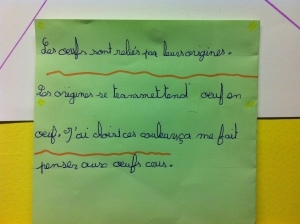 Les œufs sont reliés par leurs origines.
Les origines se transmettend' œuf en
œuf. J'ai choisi ces couleurs ça me fait
penser aux œufs cous.